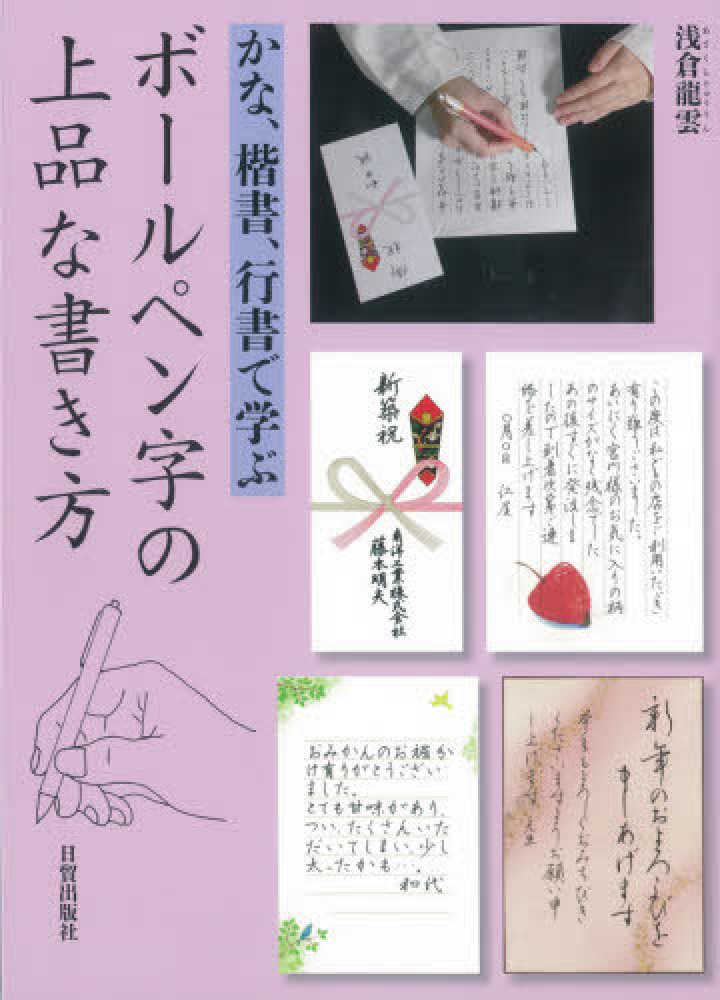 浅倉龍雲
あさくらりゅううん
かな、楷書、行書で学ぶ
ボールペン字の
上品な書き方
新築祝
東洋工業株式会社
藤本明夫
この度は私どもの店をご利用いただき
有り難うございました。
あいにく宮川様のお気に入りの柄
のサイズがなく残念でした
あの後すぐに発注しま
〇月〇日
おみかんのお裾分
け有りがとうござい
ました。
とても甘味があり、
つい、たくさんいた
だいてしまい、少し
太ったかも…。
和代
新年のおよろこびを
申しあげます
日貿出版社